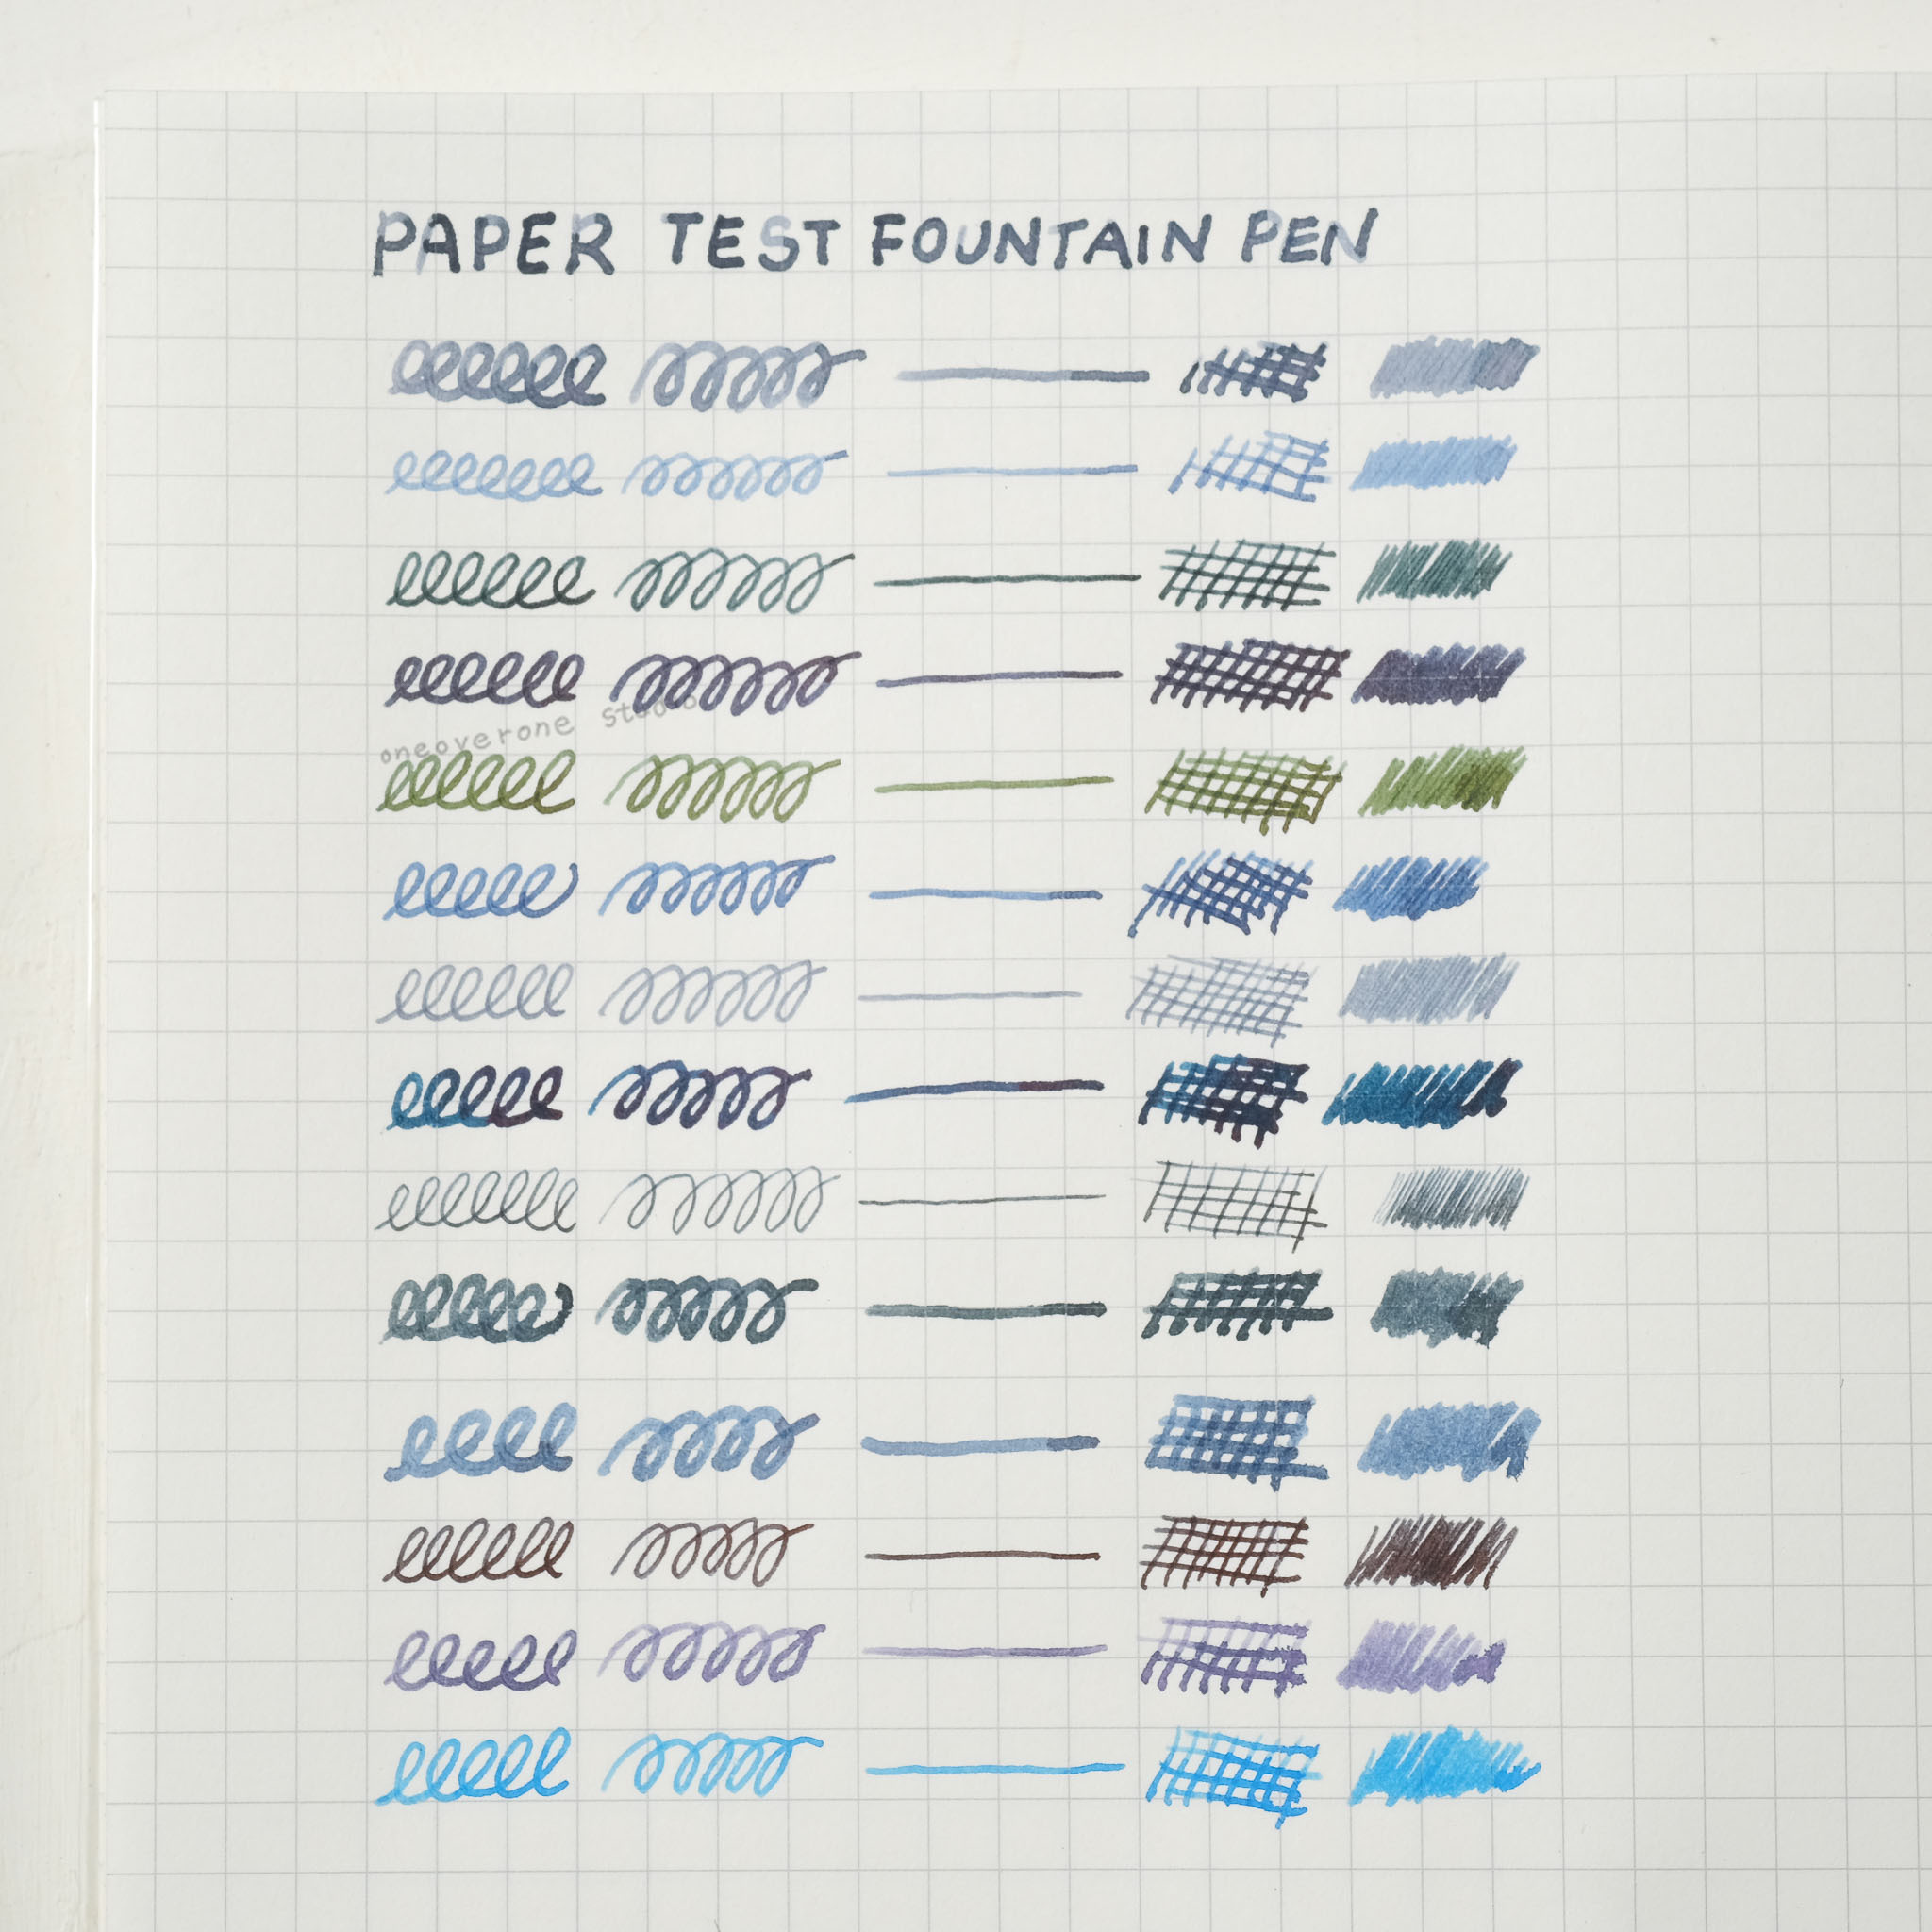 PAPER TEST FOUNTAIN PEN
oneoverone studio